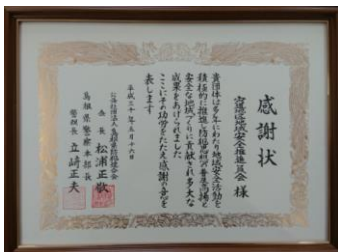 感謝状
地域安全推進員会 様
貴団体は多年にわたり地域安全活動を
積極的に推進し防犯思想の普及高揚と
安全な地域づくりに貢献され多大な
成果をあげられました
ここにその功労をたたえ感謝の意を
表します
平成三十年五月十六日
会長 松浦正敬
島根県警察本部長
警視長